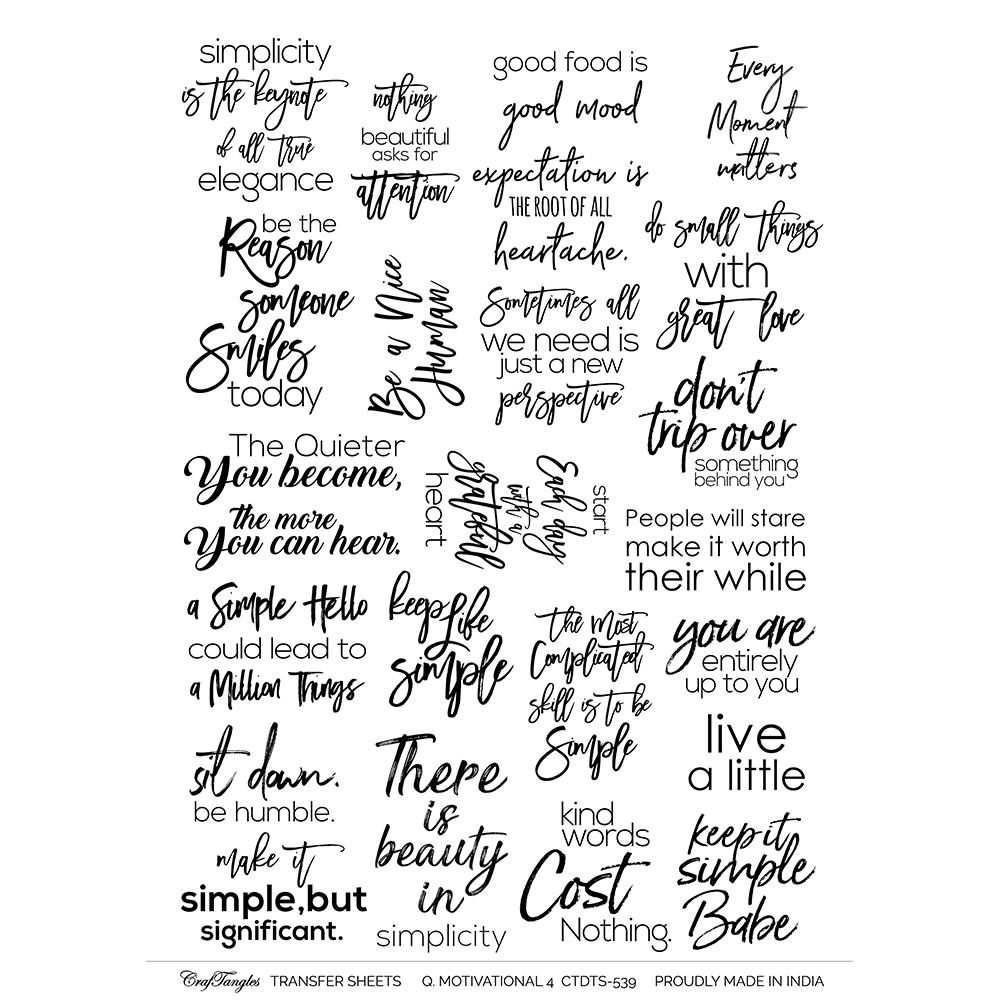 simplicity
is the keynote
of all true
elegance
nothing
beautiful
asks for
attention
good food is
good mood
Every
Moment
matters
expectation is
THE ROOT OF ALL
heartache.
be the
Reason
someone
Smiles
today
Be a Nice
Human
Sometimes all
we need is
just a new
perspective
do small things
with
great love
don't
trip over
something
behind you
The Quieter
You become,
the more
You can hear.
start
Each day
with a
grateful
heart
People will stare
make it worth
their while
a Simple Hello
could lead to
a Million Things
keep Life
simple
the Most
Complicated
skill is to be
Simple
you are
entirely
up to you
sit down.
be humble.
There
is
beauty
in
simplicity
live
a little
make it
simple,but
significant.
kind
words
Cost
Nothing.
keep it
simple
Babe
CrafTangles TRANSFER SHEETS Q. MOTIVATIONAL 4 CTDTS-539 PROUDLY MADE IN INDIA